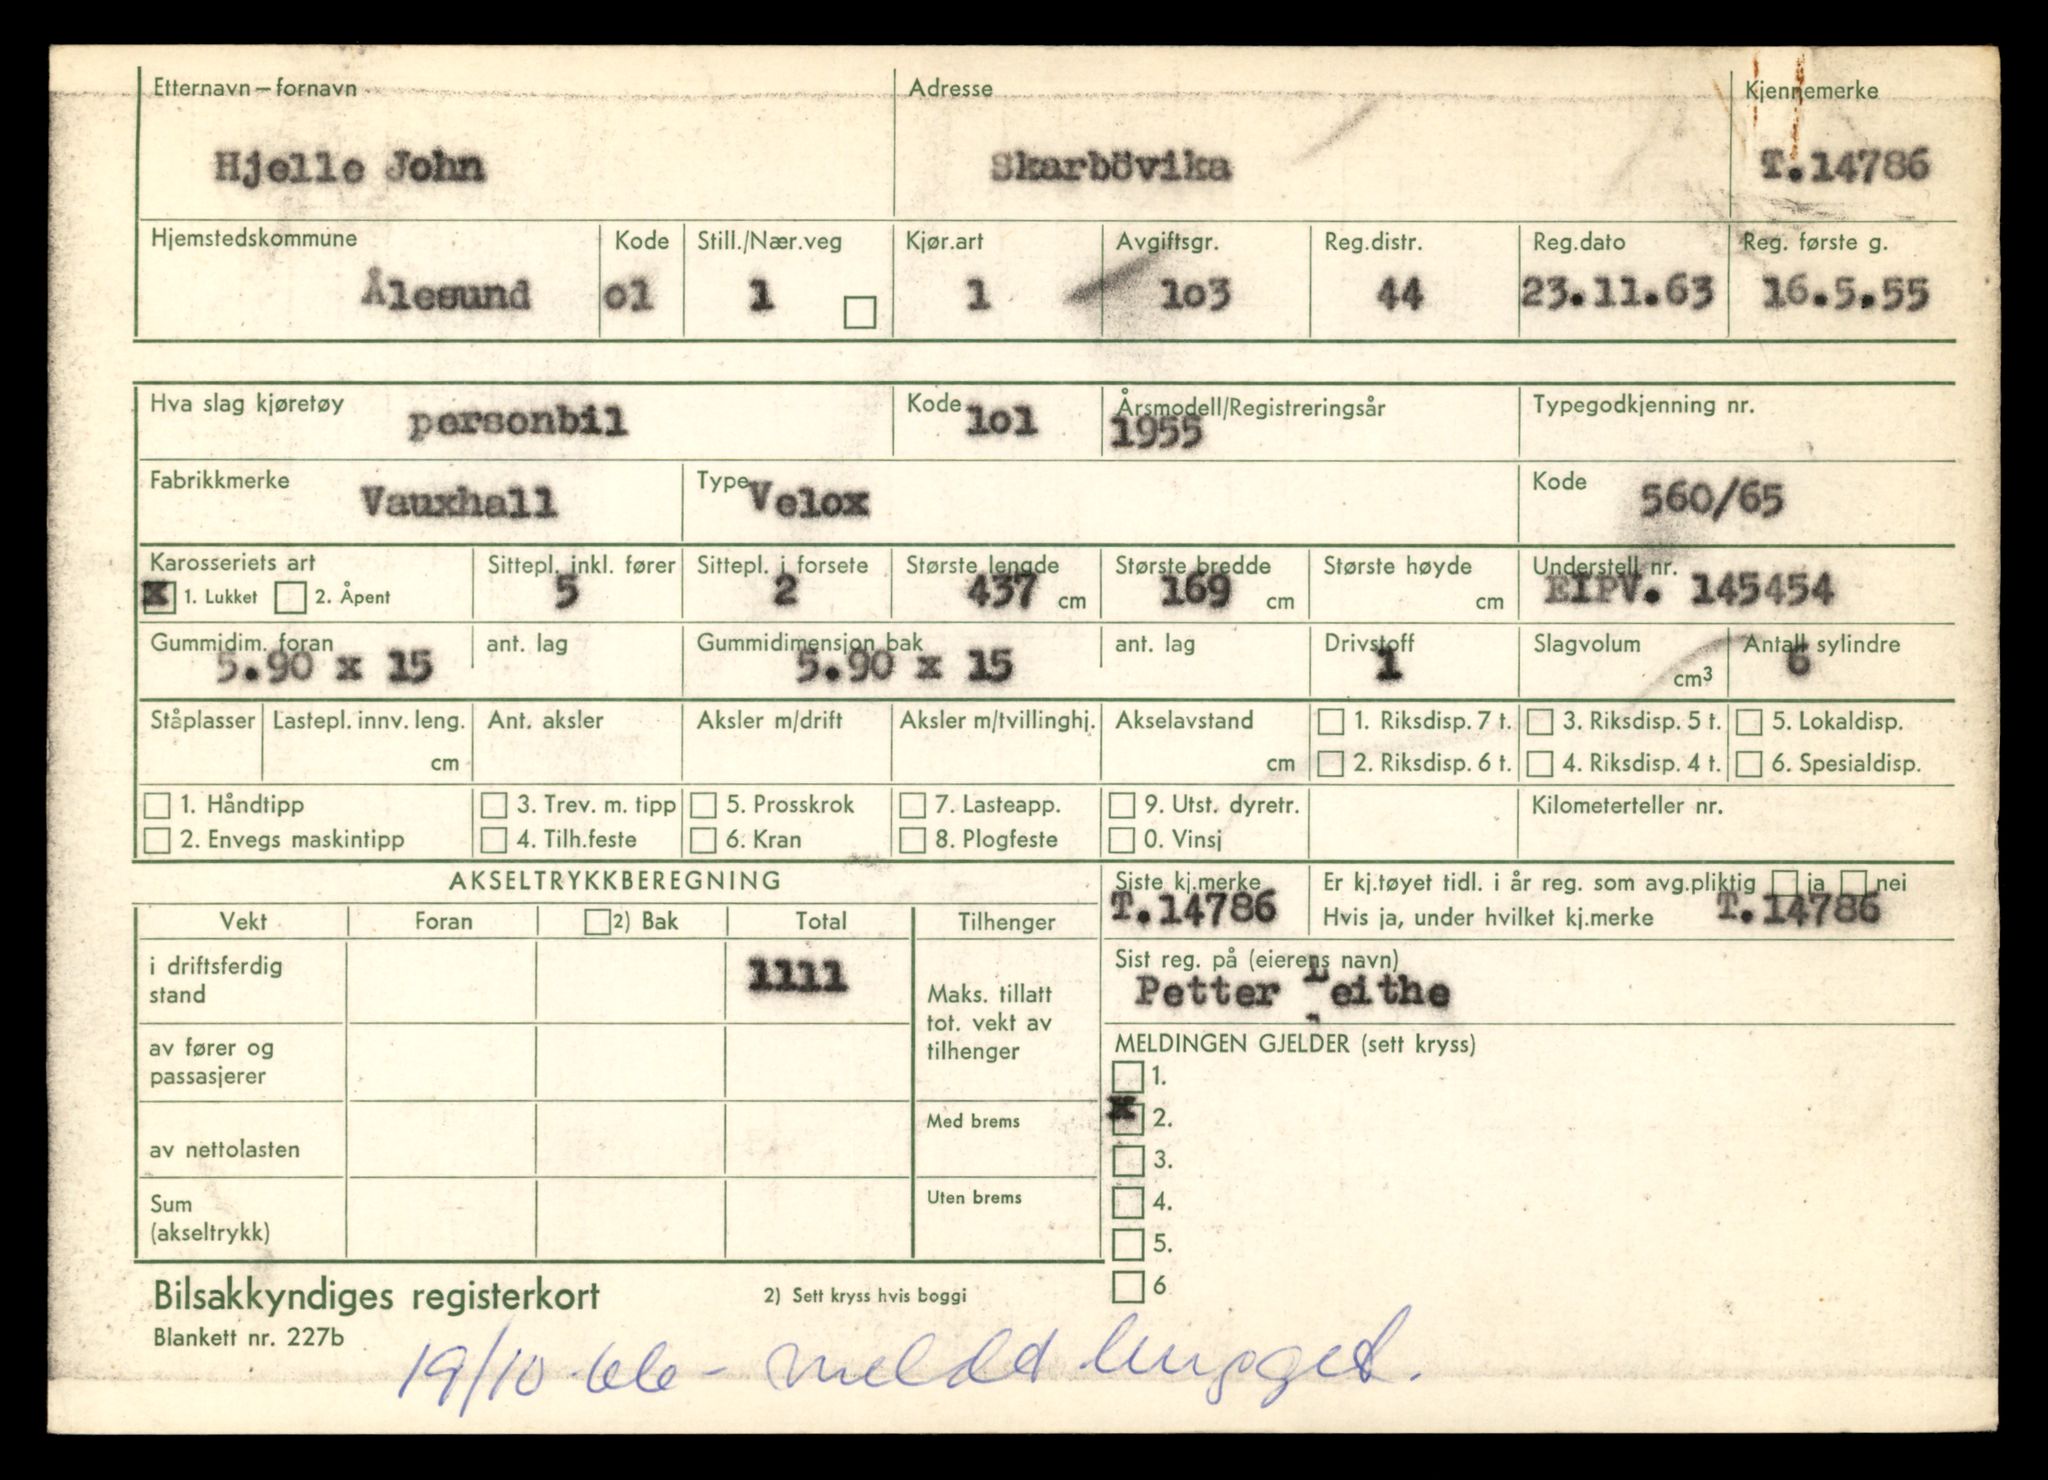 Etternavn – fornavn Adresse Kjennemerke
Hjelle John Skarbövika T.14786
Hjemstedskommune Kode Still./Nær.veg Kjør.art Avgiftsgr. Reg.distr. Reg.dato Reg. første g.
Ålesund o1 1 1 1o3 44 23.11.63 16.5.55
Hva slag kjøretøy Kode Årsmodell/Registreringsår Typegodkjenning nr.
personbil 1o1 1955
Fabrikkmerke Type Kode
Vauxhall Velox 560/65
Karosseriets art Sittepl. inkl. fører Sittepl. i forsete Største lengde Største bredde Største høyde Understell nr.
x 1. Lukket 2. Åpent 5 2 437 cm 169 cm cm EIPV. 145454
Gummidim. foran ant. lag Gummidimensjon bak ant. lag Drivstoff Slagvolum Antall sylindre
5.90 x 15 5.90 x 15 1 cm³ 6
Ståplasser Lastepl. innv. leng. Ant. aksler Aksler m/drift Aksler m/tvillinghj. Akselavstand 1. Riksdisp. 7 t. 3. Riksdisp. 5 t. 5. Lokaldisp.
cm cm 2. Riksdisp. 6 t. 4. Riksdisp. 4 t. 6. Spesialdisp.
1. Håndtipp 3. Trev. m. tipp 5. Prosskrok 7. Lasteapp. 9. Utst. dyretr. Kilometerteller nr.
2. Envegs maskintipp 4. Tilh.feste 6. Kran 8. Plogfeste 0. Vinsj
AKSELTRYKKBEREGNING Siste kj.merke Er kj.tøyet tidl. i år reg. som avg.pliktig ja nei
T.14786 Hvis ja, under hvilket kj.merke T.14786
Vekt Foran 2) Bak Total Tilhenger
Sist reg. på (eierens navn)
i driftsferdig stand 1111 Petter Leithe
Maks. tillatt tot. vekt av tilhenger
MELDINGEN GJELDER (sett kryss)
av fører og passasjerer 1.
Med brems x 2.
av nettolasten 3.
Uten brems 4.
Sum (akseltrykk) 5.
6
Bilsakkyndiges registerkort 2) Sett kryss hvis boggi
Blankett nr. 227b
19/10-66 - meldt hugget.